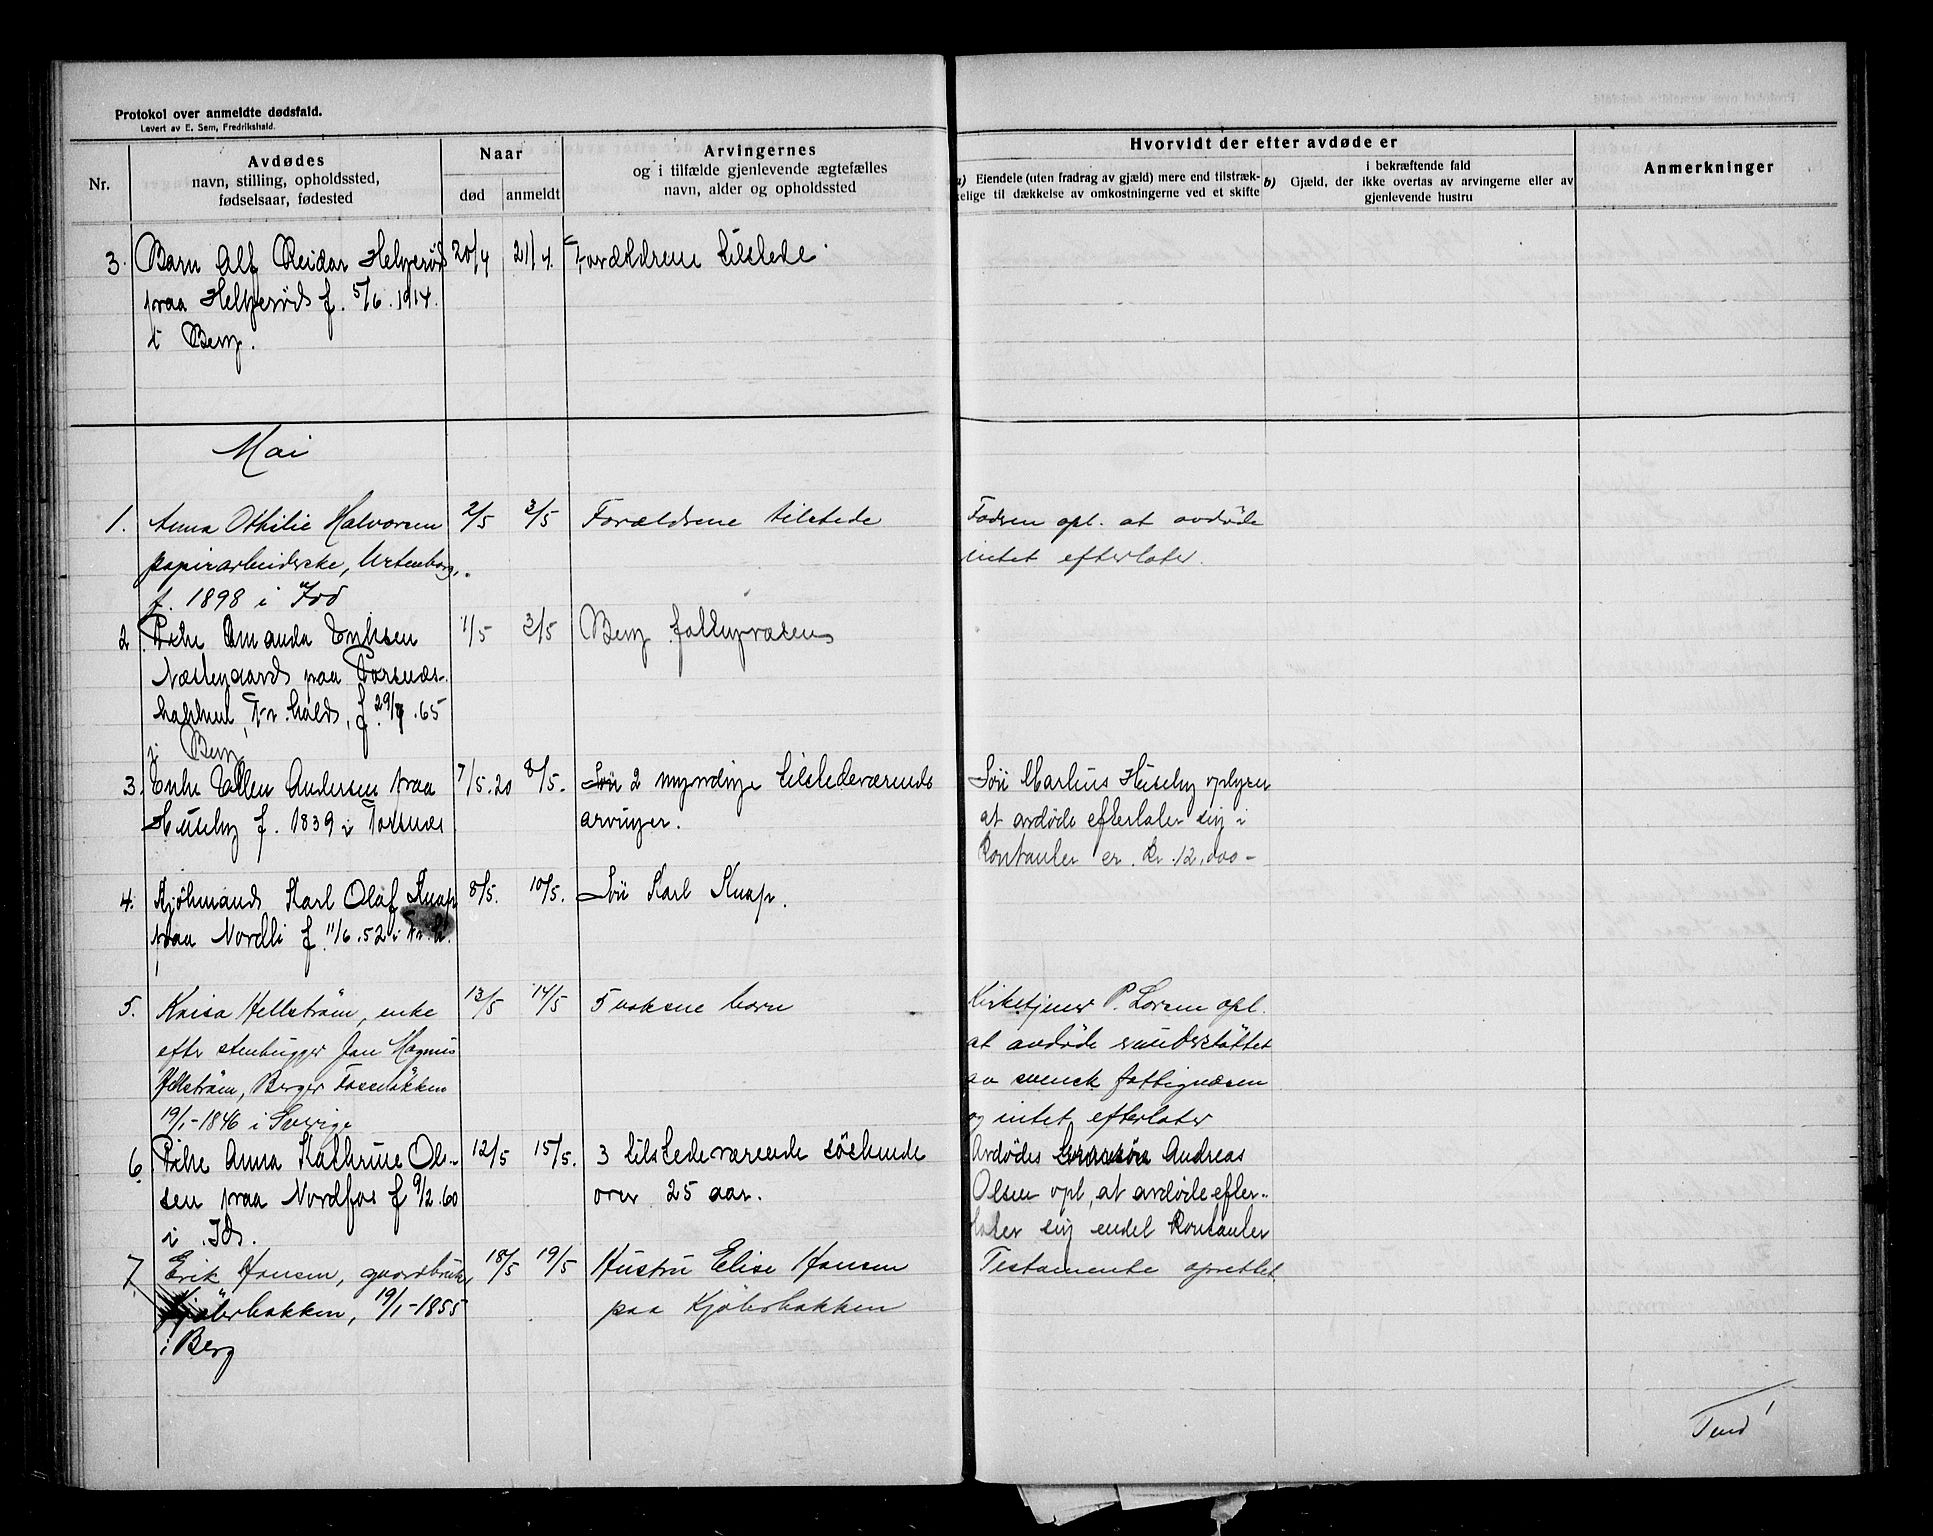 Protokol over anmeldte dødsfald.
Levert av E. Sem, Fredrikshald.
Nr.
Avdødes
navn, stilling, opholdssted,
fødselsaar, fødested
Naar
død
anmeldt
Arvingernes
og i tilfælde gjenlevende ægtefælles
navn, alder og opholdssted
Hvorvidt der efter avdøde er
a) Eiendele (uten fradrag av gjæld) mere end tilstræk-
kelige til dækkelse av omkostningerne ved et skifte
i bekræftende fald
b) Gjæld, der ikke overtas av arvingerne eller av
gjenlevende hustru
Anmerkninger
3. Barn Alf Reidar Helgerød 20/4 21/4. Forældrene tilstede.
fraa Helgerød f. 5/6.1914.
i Berg.
Mai
1. Anna Othilie Halvorsen 2/5 3/5 Forældrene tilstede Fadren opl. at avdøde
papirarbeiderske, intet efterlater.
f. 1898 i Idd
2. Pike Amanda Eriksen 1/5 3/5 Berg fattigvæsen
Næstegaard paa Torsnæs-
bakken, Fr.hald, f. 29/7.65
i Berg
3. Enke Ellen Andersen fraa 7/5.20 8/5. 2 myndige tilstedeværende Søn Markus Huseby oplyser
Huseby f. 1839 i Torsnæs arvinger. at avdøde efterlater sig i
kontanter Kr. 12,000-
4. Kjøbmand Karl Olaf Knap 8/5. 10/5. Søn Karl Knap.
fraa Nordli f. 11/6.52 i Fr.h.
5. Kaisa Hellstrøm, enke 13/5 14/5 5 voksne barn Kirketjener P. Lorem opl.
efter stenhugger Jan Magnus at avdøde er understøttet
Hellstrøm, Berger Fosseløkken av svensk fattigvæsen
19/1-1846 i Sverige og intet efterlater
6. Pike Anna Kathrine Ol- 12/5 15/5. 3 tilstedeværende søskende Avdødes Andreas
sen fraa Nordfos f 9/2.60 over 25 aar. Olsen opl, at avdøde efter-
i Id. later sig endel kontanter
7. Erik Hansen, gaardbruker, 18/5 19/5 Hustru Elise Hansen Testamente oprettet.
Kjølerbakken, 19/1-1855 paa Kjølerbakken
i Berg